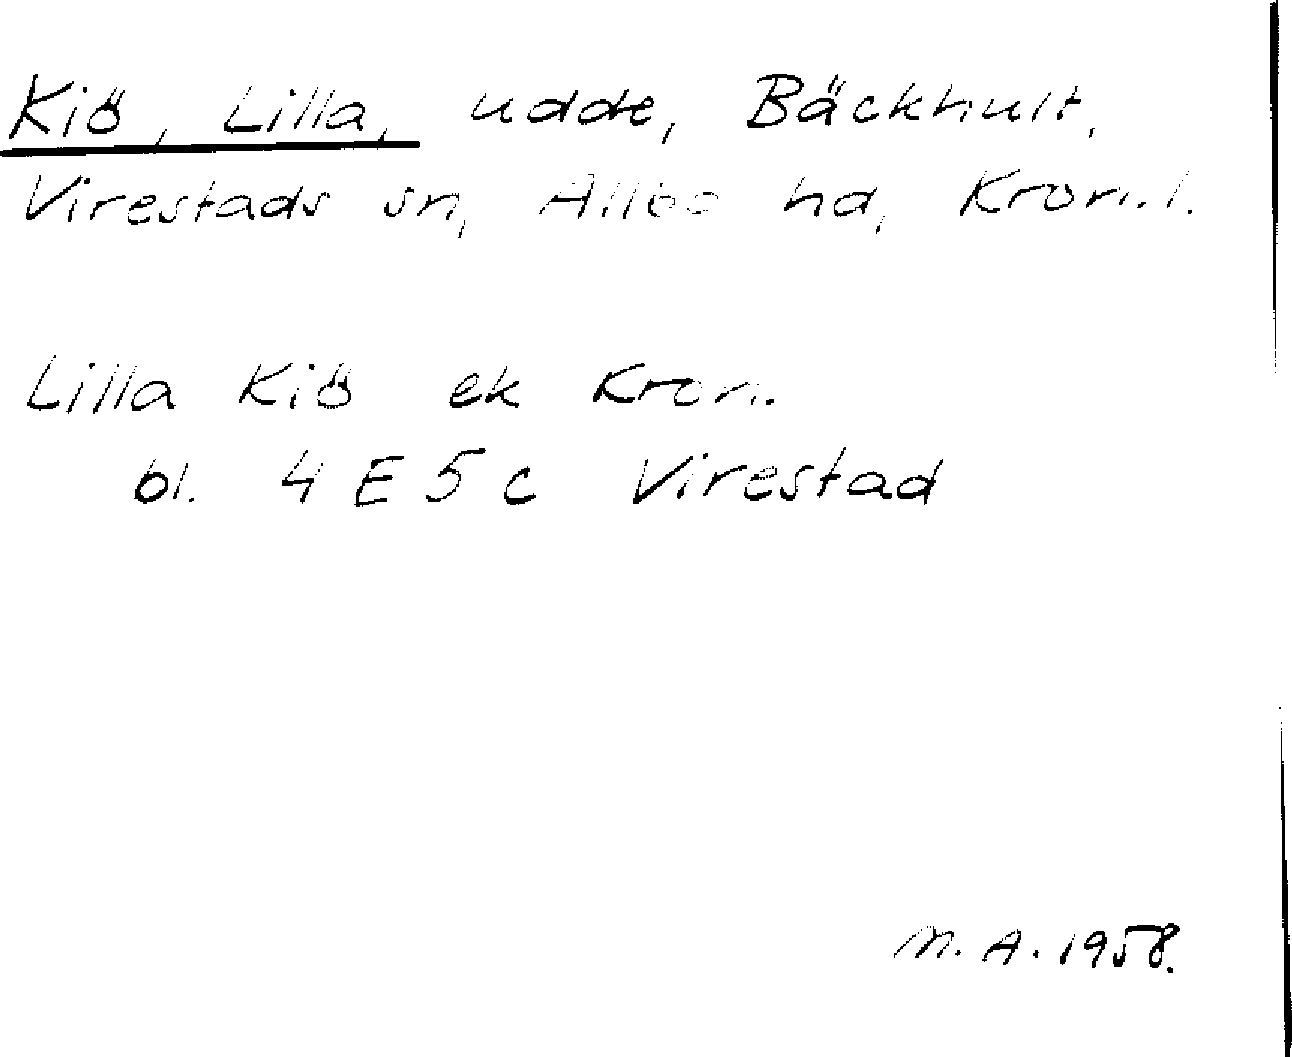 Kiö, Lilla, udde, Bäckhult,
Virestads sn, Allbo hd, Kron.l.
Lilla Kiö ek Kron.
bl. 4 E 5 c Virestad
M.A. 1958.